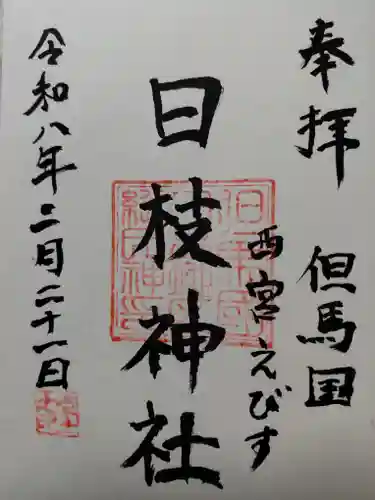 奉拝 但馬国
西宮えびす
日枝神社
令和八年二月二十一日